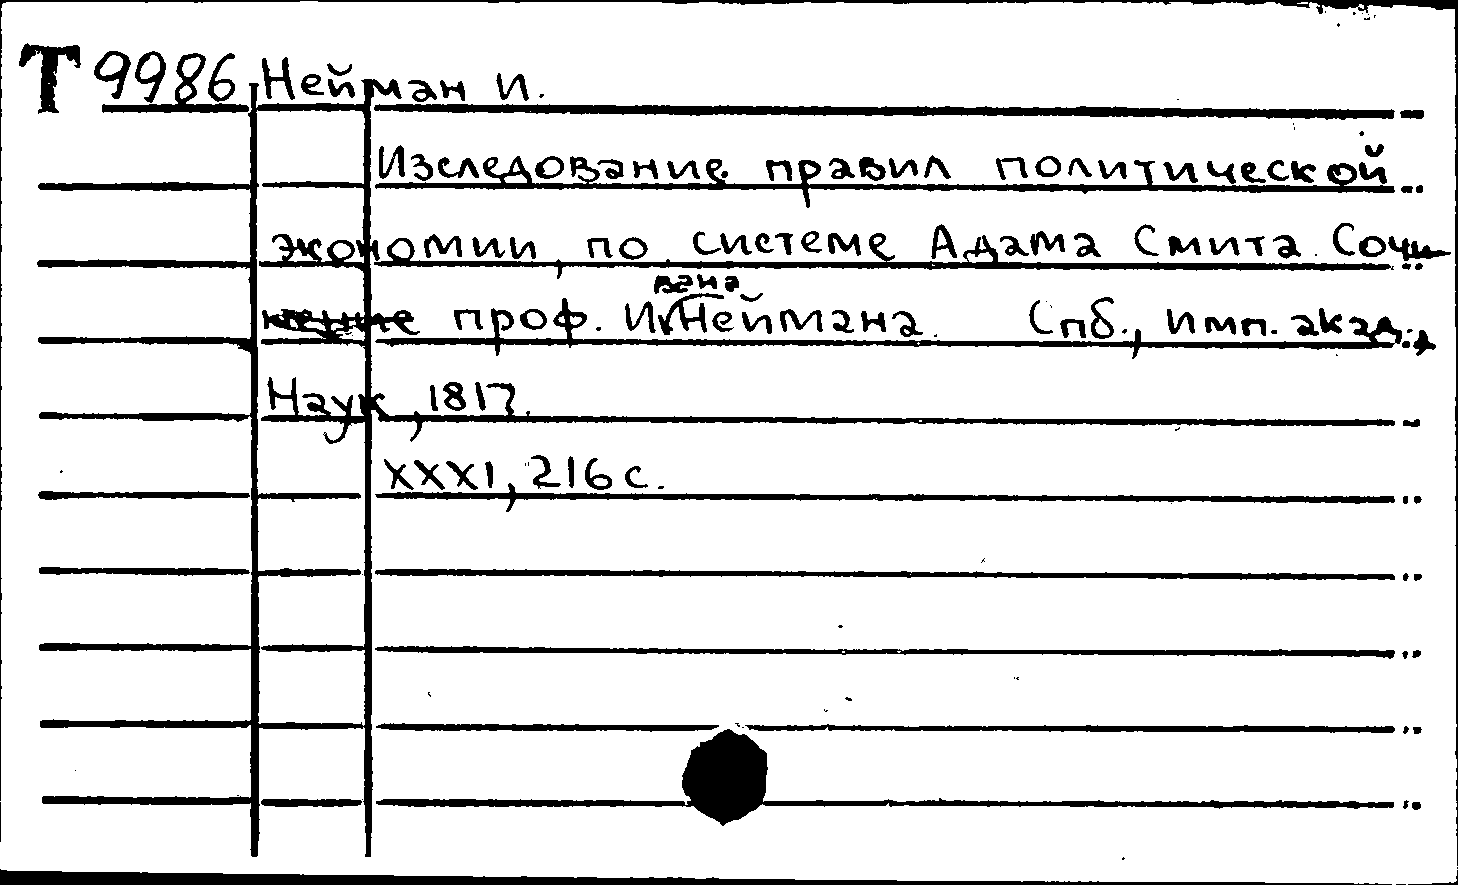 Т 9986 Нейман И.
Изследование правил политической
экономии, по системе Адама Смита. Сочи
нение проф. Ивана Неймана. Спб., Имп. акад.,
Наук, 1817.
XXXI, 216 с.